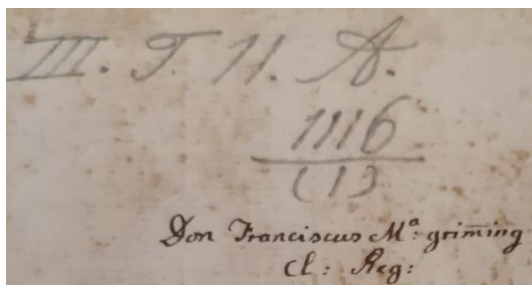 III. T. 11. A.
1116
(1)
Don Franciscus Mª: grim̄ing
Cl: Reg: